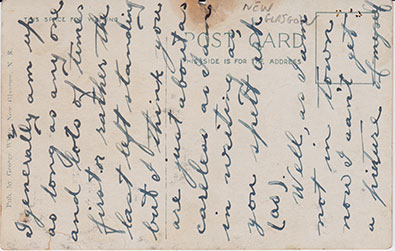 NEW
GLASGOW
SPACE FOR
POST CARD
THIS SIDE IS FOR THE ADDRESS
Pub. by George New Glasgow, N. S.
I generally am up
as long as any one
and lots of times
first or rather the
last left standing
but I think you
are just about as
careless as I am
in writing as
you spelt aut
(as).
Well, as I am
not in town
now I can't get
a picture of myself